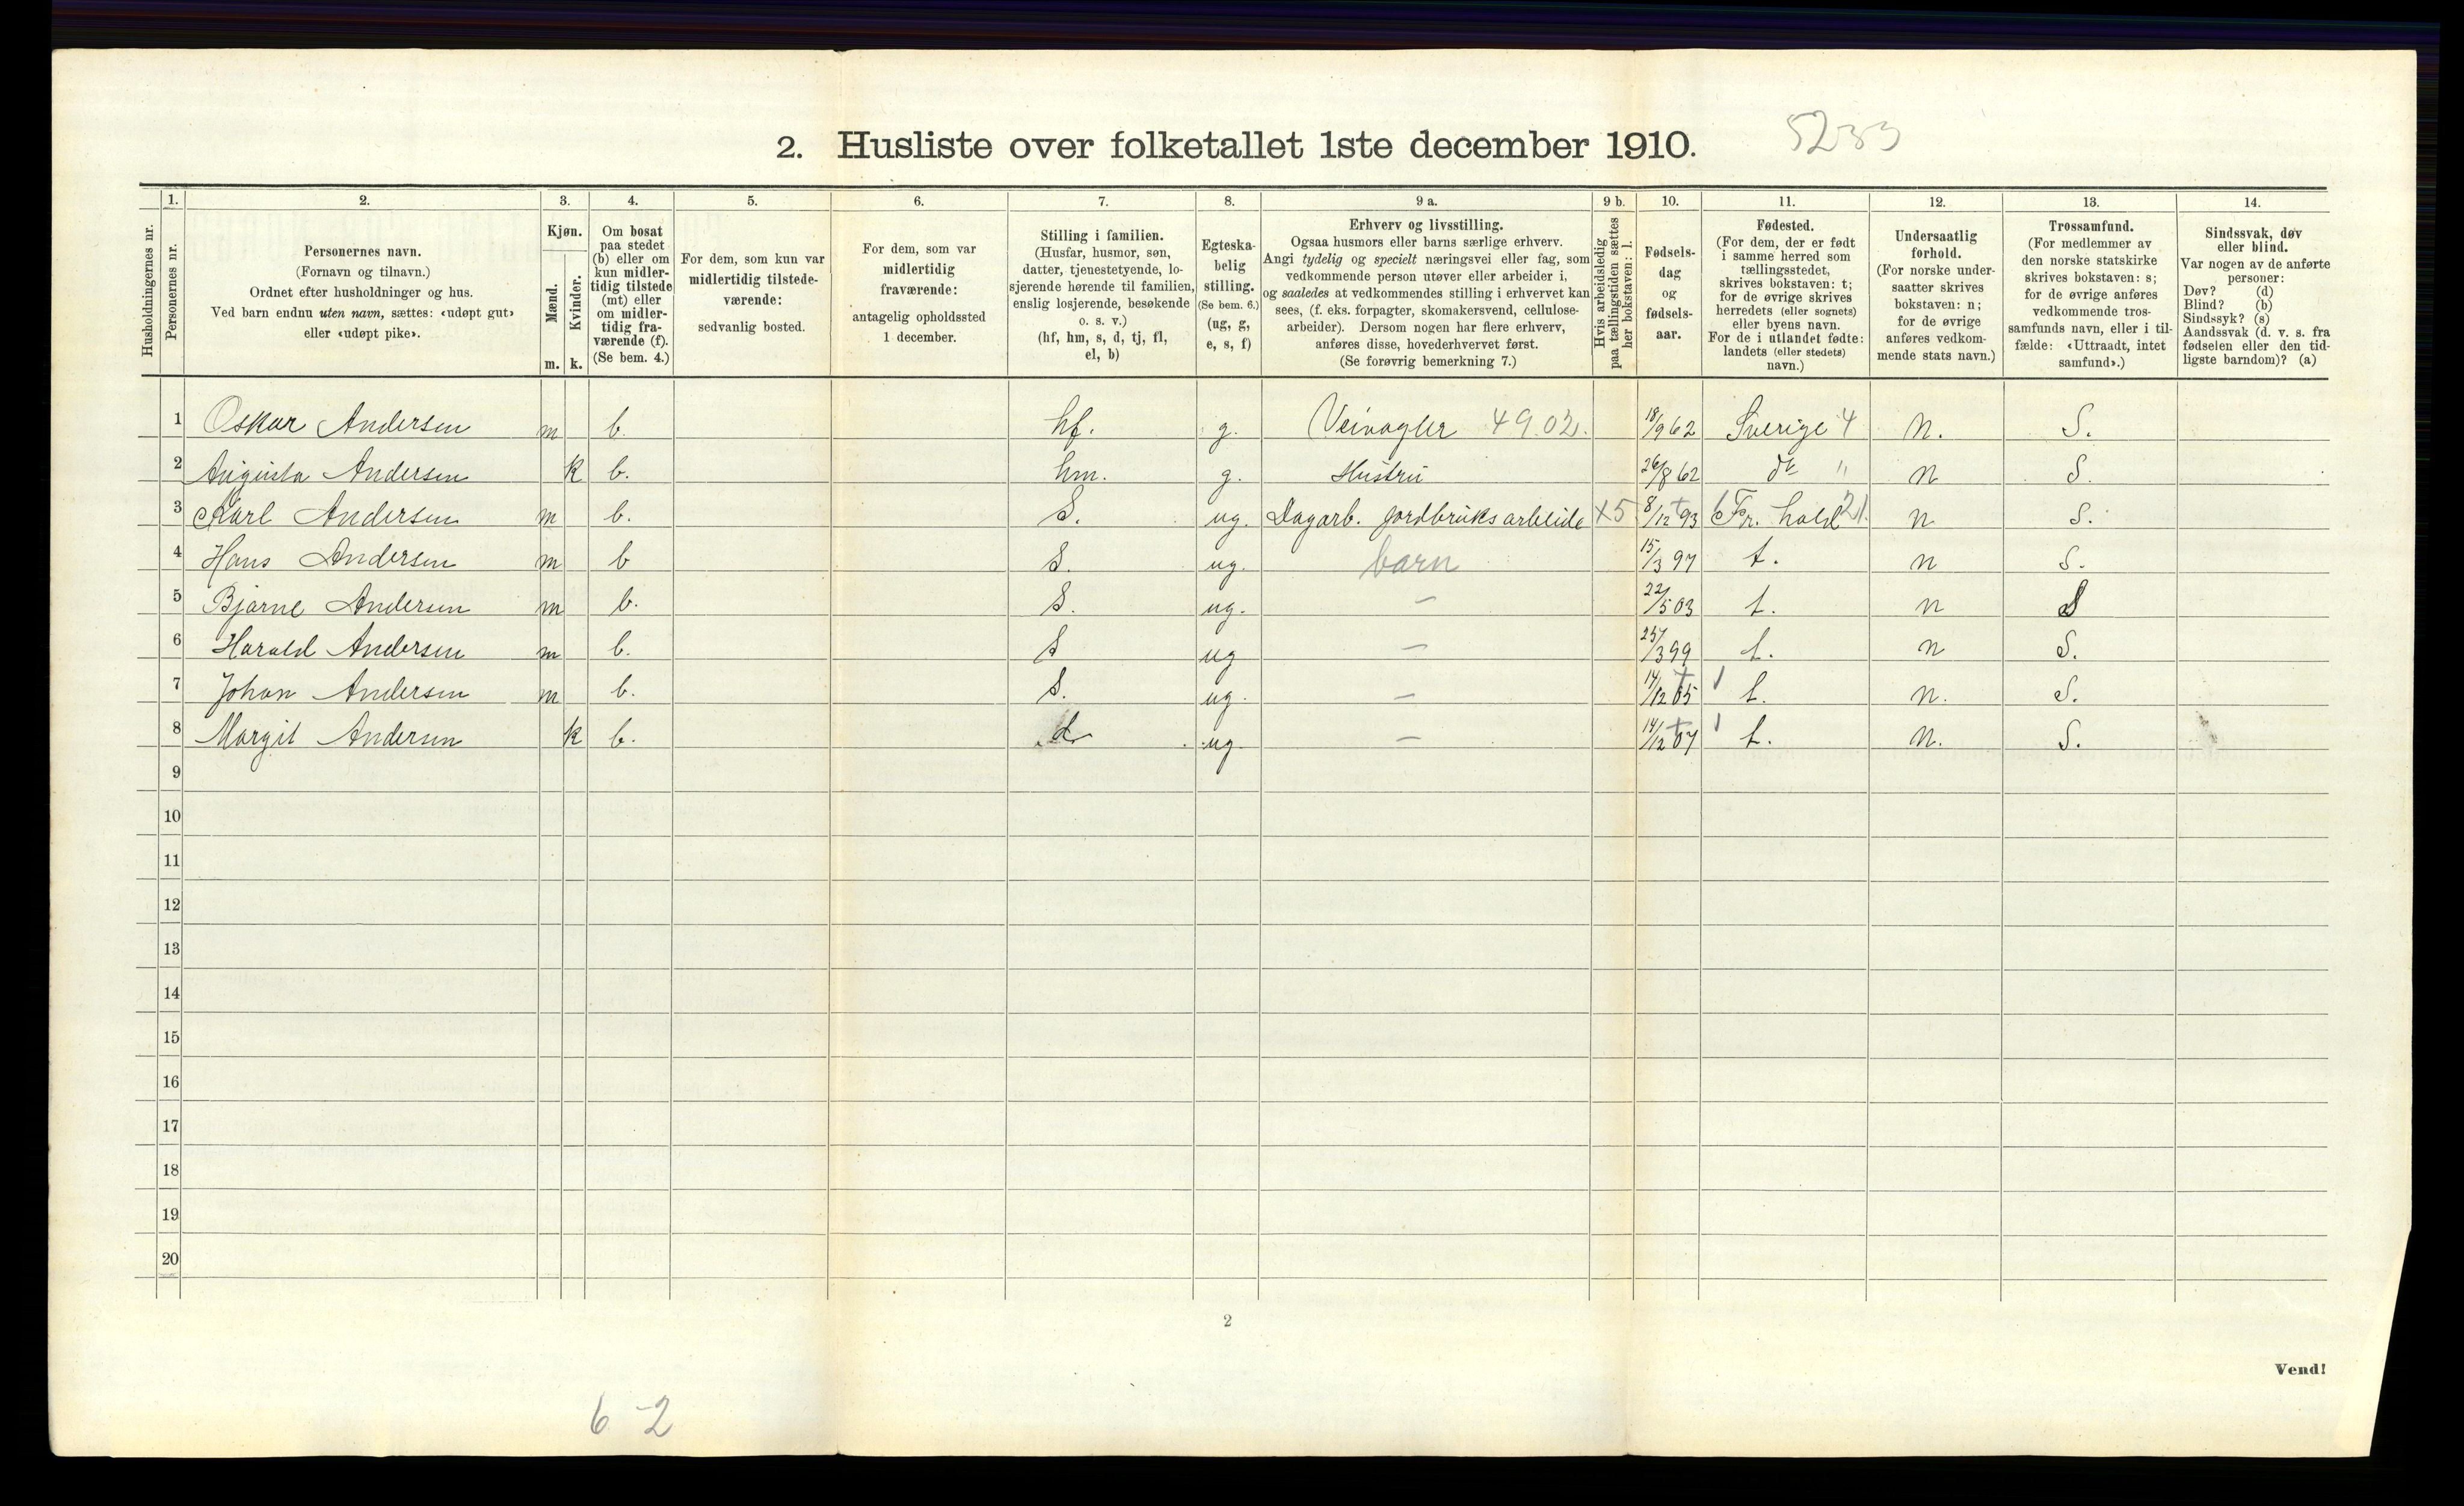 2. Husliste over folketallet 1ste december 1910. 5233
Husholdningernes nr.
1. Personernes nr.
2. Personernes navn.
(Fornavn og tilnavn.)
Ordnet efter husholdninger og hus.
Ved barn endnu uten navn, sættes: «udøpt gut»
eller «udøpt pike».
3. Kjøn.
Mænd. m.
Kvinder. k.
4. Om bosat
paa stedet
(b) eller om
kun midler-
tidig tilstede
(mt) eller
om midler-
tidig fra-
værende (f).
(Se bem. 4.)
5. For dem, som kun var
midlertidig tilstede-
værende:
sedvanlig bosted.
6. For dem, som var
midlertidig
fraværende:
antagelig opholdssted
1 december.
7. Stilling i familien.
(Husfar, husmor, søn,
datter, tjenestetyende, lo-
sjerende hørende til familien,
enslig losjerende, besøkende
o. s. v.)
(hf, hm, s, d, tj, fl,
el, b)
8. Egteska-
belig
stilling.
(Se bem. 6.)
(ug, g,
e, s, f)
9 a. Erhverv og livsstilling.
Ogsaa husmors eller barns særlige erhverv.
Angi tydelig og specielt næringsvei eller fag, som
vedkommende person utøver eller arbeider i,
og saaledes at vedkommendes stilling i erhvervet kan
sees, (f. eks. forpagter, skomakersvend, cellulose-
arbeider). Dersom nogen har flere erhverv,
anføres disse, hovederhvervet først.
(Se forøvrig bemerkning 7.)
9 b. Hvis arbeidsledig
paa tællingstiden sættes
her bokstaven: l.
10. Fødsels-
dag
og
fødsels-
aar.
11. Fødested.
(For dem, der er født
i samme herred som
tællingsstedet,
skrives bokstaven: t;
for de øvrige skrives
herredets (eller sognets)
eller byens navn.
For de i utlandet fødte:
landets (eller stedets)
navn.)
12. Undersaatlig
forhold.
(For norske under-
saatter skrives
bokstaven: n;
for de øvrige
anføres vedkom-
mende stats navn.)
13. Trossamfund.
(For medlemmer av
den norske statskirke
skrives bokstaven: s;
for de øvrige anføres
vedkommende tros-
samfunds navn, eller i til-
fælde: «Uttraadt, intet
samfund».)
14. Sindssvak, døv
eller blind.
Var nogen av de anførte
personer:
Døv? (d)
Blind? (b)
Sindssyk? (s)
Aandssvak (d. v. s. fra
fødselen eller den tid-
ligste barndom)? (a)
1 Oskar Andersen m b. hf. g. Veivogter 4902. 18/9 62 Sverige 4 n. S.
2 Augusta Andersen k b. hm. g. Hustru 26/8 62 do " n S.
3 Karl Andersen m b. S. ug. Dagarb. jordbruksarbeide x5 8/12 93 Fr. hald 21. n S.
4 Hans Andersen m b S. ug. barn 15/3 97 t. n S.
5 Bjarne Andersen m b. S. ug. – 22/5 03 t. n S
6 Harald Andersen m b. S ug – 25/3 99 t. n S.
7 Johan Andersen m b. S. ug. – 14/12 05 1 t. n. S.
8 Margit Andersen k b. d ug – 14/12 07 1 t. n. S.
9
10
11
12
13
14
15
16
17
18
19
20
2
Vend!
6-2